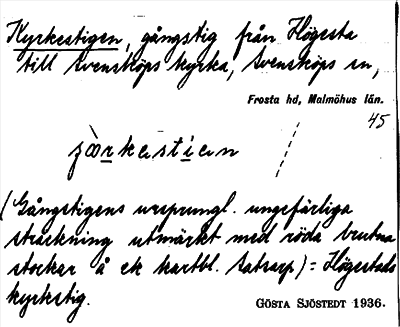 Kyrkestigen, gångstig från Högesta
till Svensköps kyrka, Svensköps sn,
Frosta hd, Malmöhus län.
45
(Gångstigens ursprungl. ungefärliga
sträckning utmärkt med röda brutna
stockar å ek kartbl. Satsarp) = Högestads
kyrkstig.
GÖSTA SJÖSTEDT 1936.